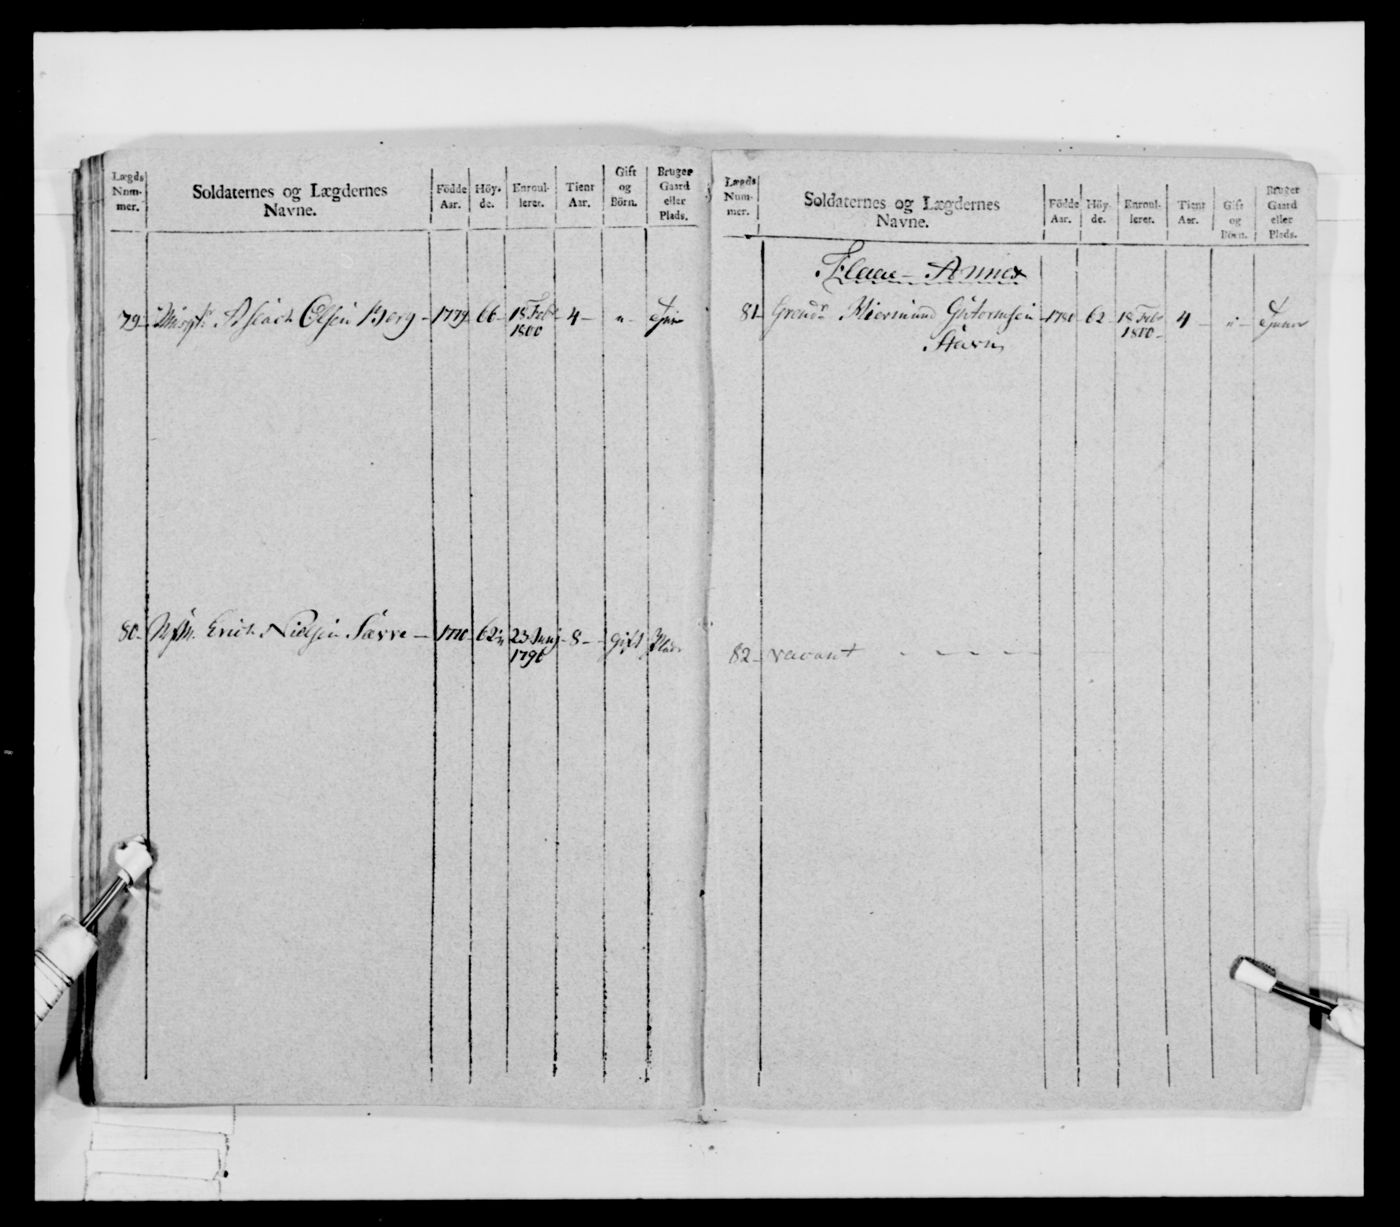 Lægds Num-mer.
Soldaternes og Lægdernes Navne.
Födde Aar.
Höy-de.
Enroul-lerer.
Tient Aar.
Gift og Börn.
Bruger Gaard eller Plads.
79 Aslach Olsen Berg 1779 66 18 Feb 4
1800
80 Erich Nielsen Sævre 1770 62 23 Junij 8 gift Plads
1796
Lægds Num-mer.
Soldaternes og Lægdernes Navne.
Födde Aar.
Höy-de.
Enroul-lerer.
Tient Aar.
Gift og Börn.
Bruger Gaard eller Plads.
Flaae - Annex
81 Guttormsen 62 18 Feb 4
Stavn 1800
82 vacant